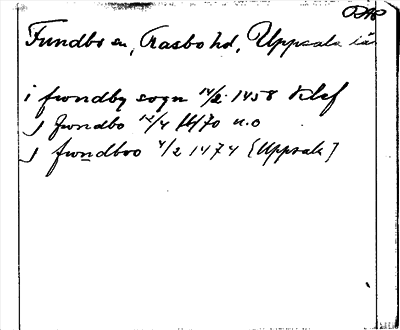 OAU
Funbo sn, Rasbo hd, Uppsala län
i fwndby sogn 14/2 1458 Klef
J fwndbo 12/4 1470 u.o
J fwndboo 4/2 1474 [Uppsala]